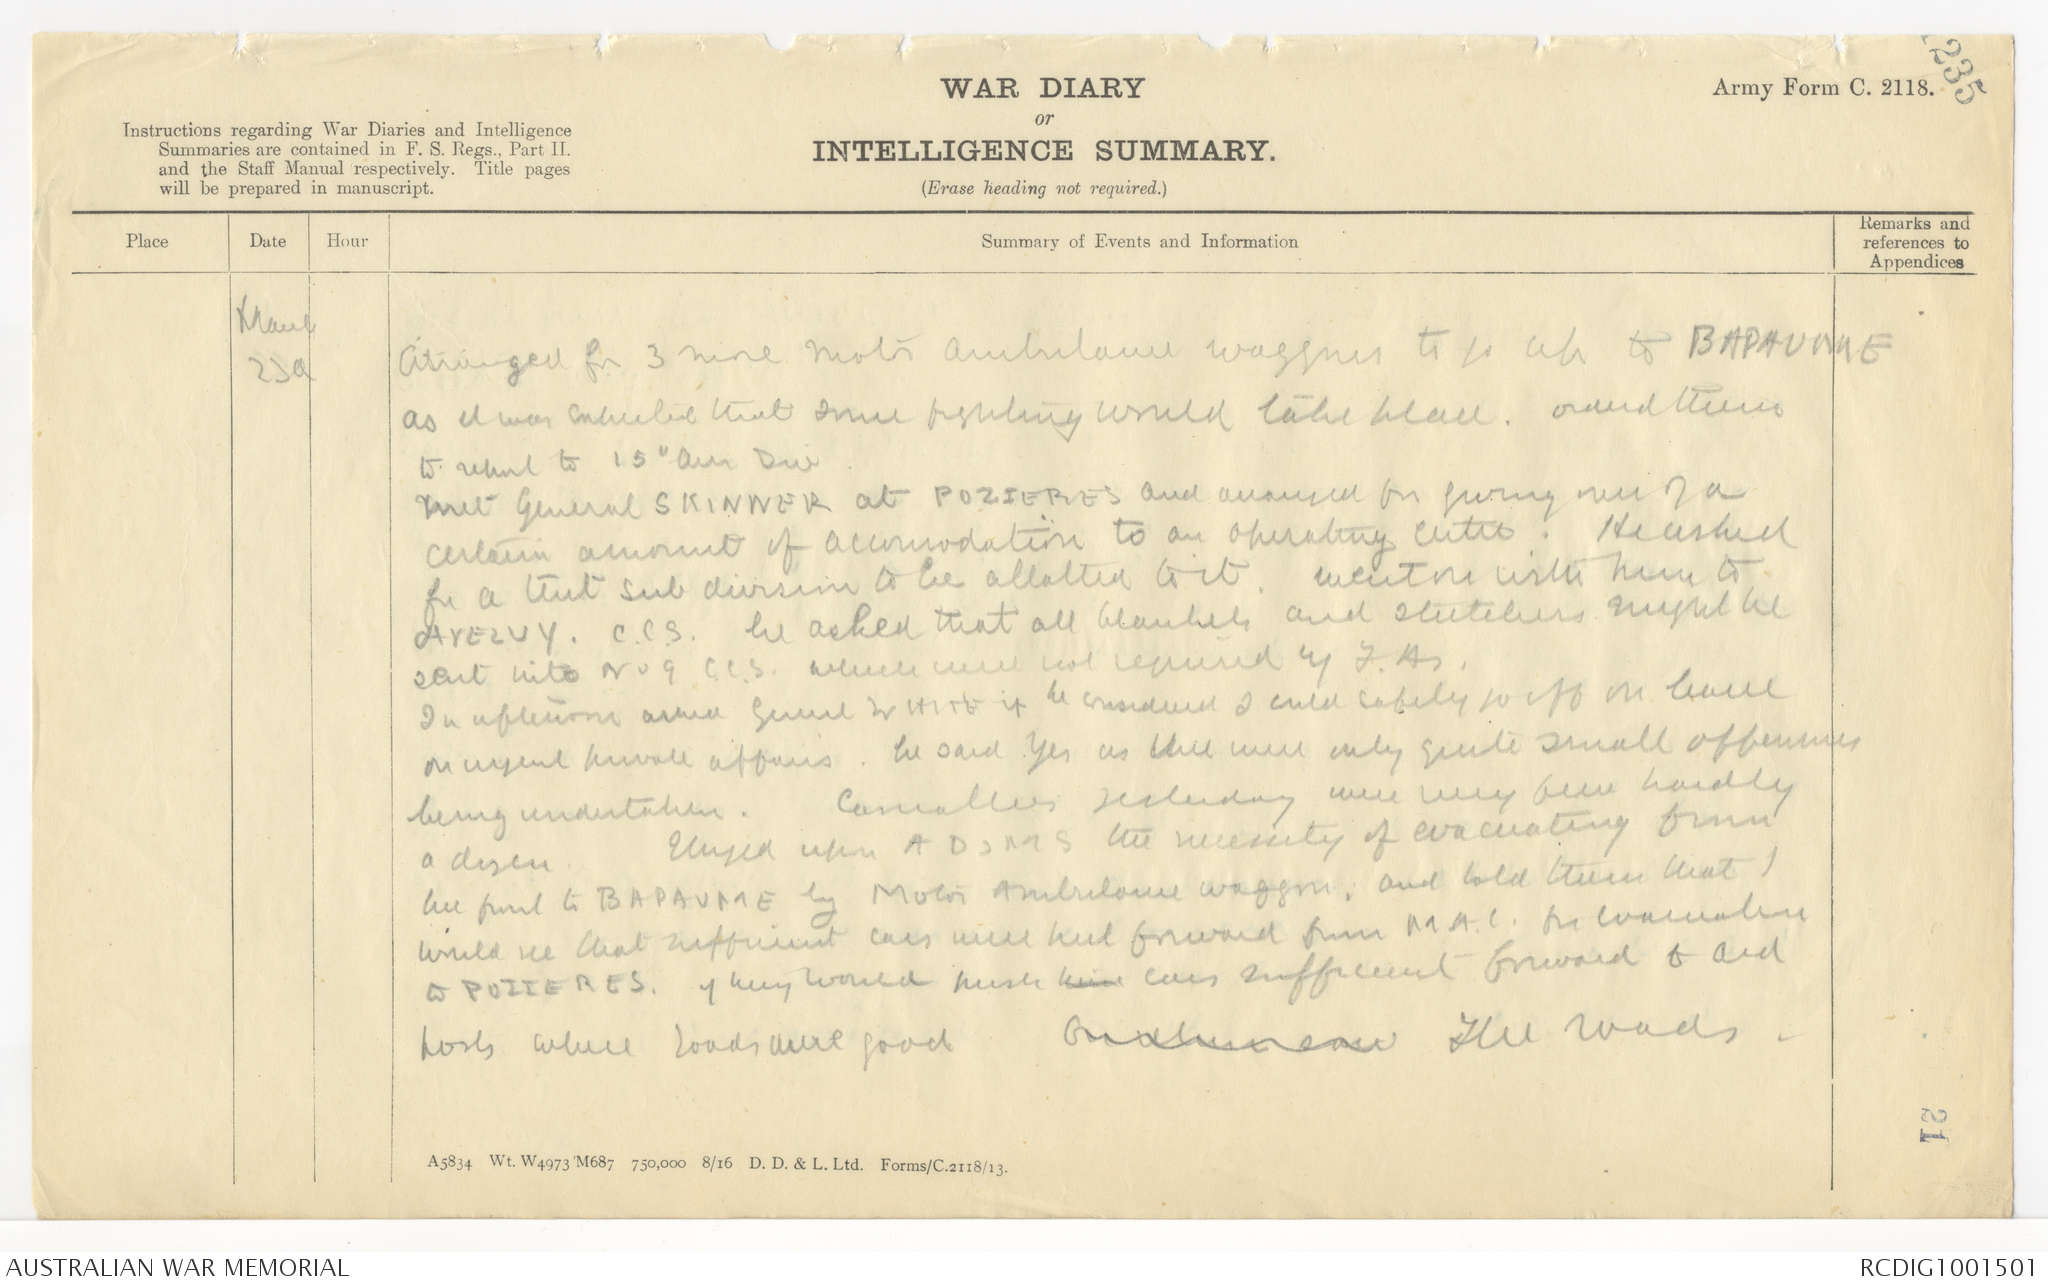 235
WAR DIARY
or
INTELLIGENCE SUMMARY.
(Erase heading not required.)
Army Form C. 2118.
Instructions regarding War Diaries and Intelligence
Summaries are contained in F. S. Regs., Part II.
and the Staff Manual respectively. Title pages
will be prepared in manuscript.
Place
Date
Hour
Summary of Events and Information
Remarks and
references to
Appendices
March
Arranged for 3 more Motor Ambulance waggons to go up to BAPAUME
as it was expected that some fighting would take place. ordered them
to report to 15" Aus Div.
met General SKINNER at POZIERES and arranged for giving over of a
certain amount of accomodation to an operating centre. He asked
for a tent sub division to be allotted to it. went on with him to
AVELUY. C.C.S. he asked that all blankets and stretchers might be
sent into No 9 C.C.S. which were not required by F. As.
In afternoon asked General WHITE if he considered I could safely go off on leave
on urgent private affairs. he said Yes as there were only quite small offensives
being undertaken. Casualties yesterday were very few hardly
a dozen. Urged upon ADsMS the necessity of evacuating from
the front to BAPAUME by Motor Ambulance waggon, and told them that I
would see that sufficient cars were kept forward from M.A.C. for evacuation
to POZIERES. if they would push cars sufficient forward to aid
posts where roads were good The roads.
A5834 Wt. W4973/M687 750,000 8/16 D. D. & L. Ltd. Forms/C.2118/13.
21
AUSTRALIAN WAR MEMORIAL
RCDIG1001501